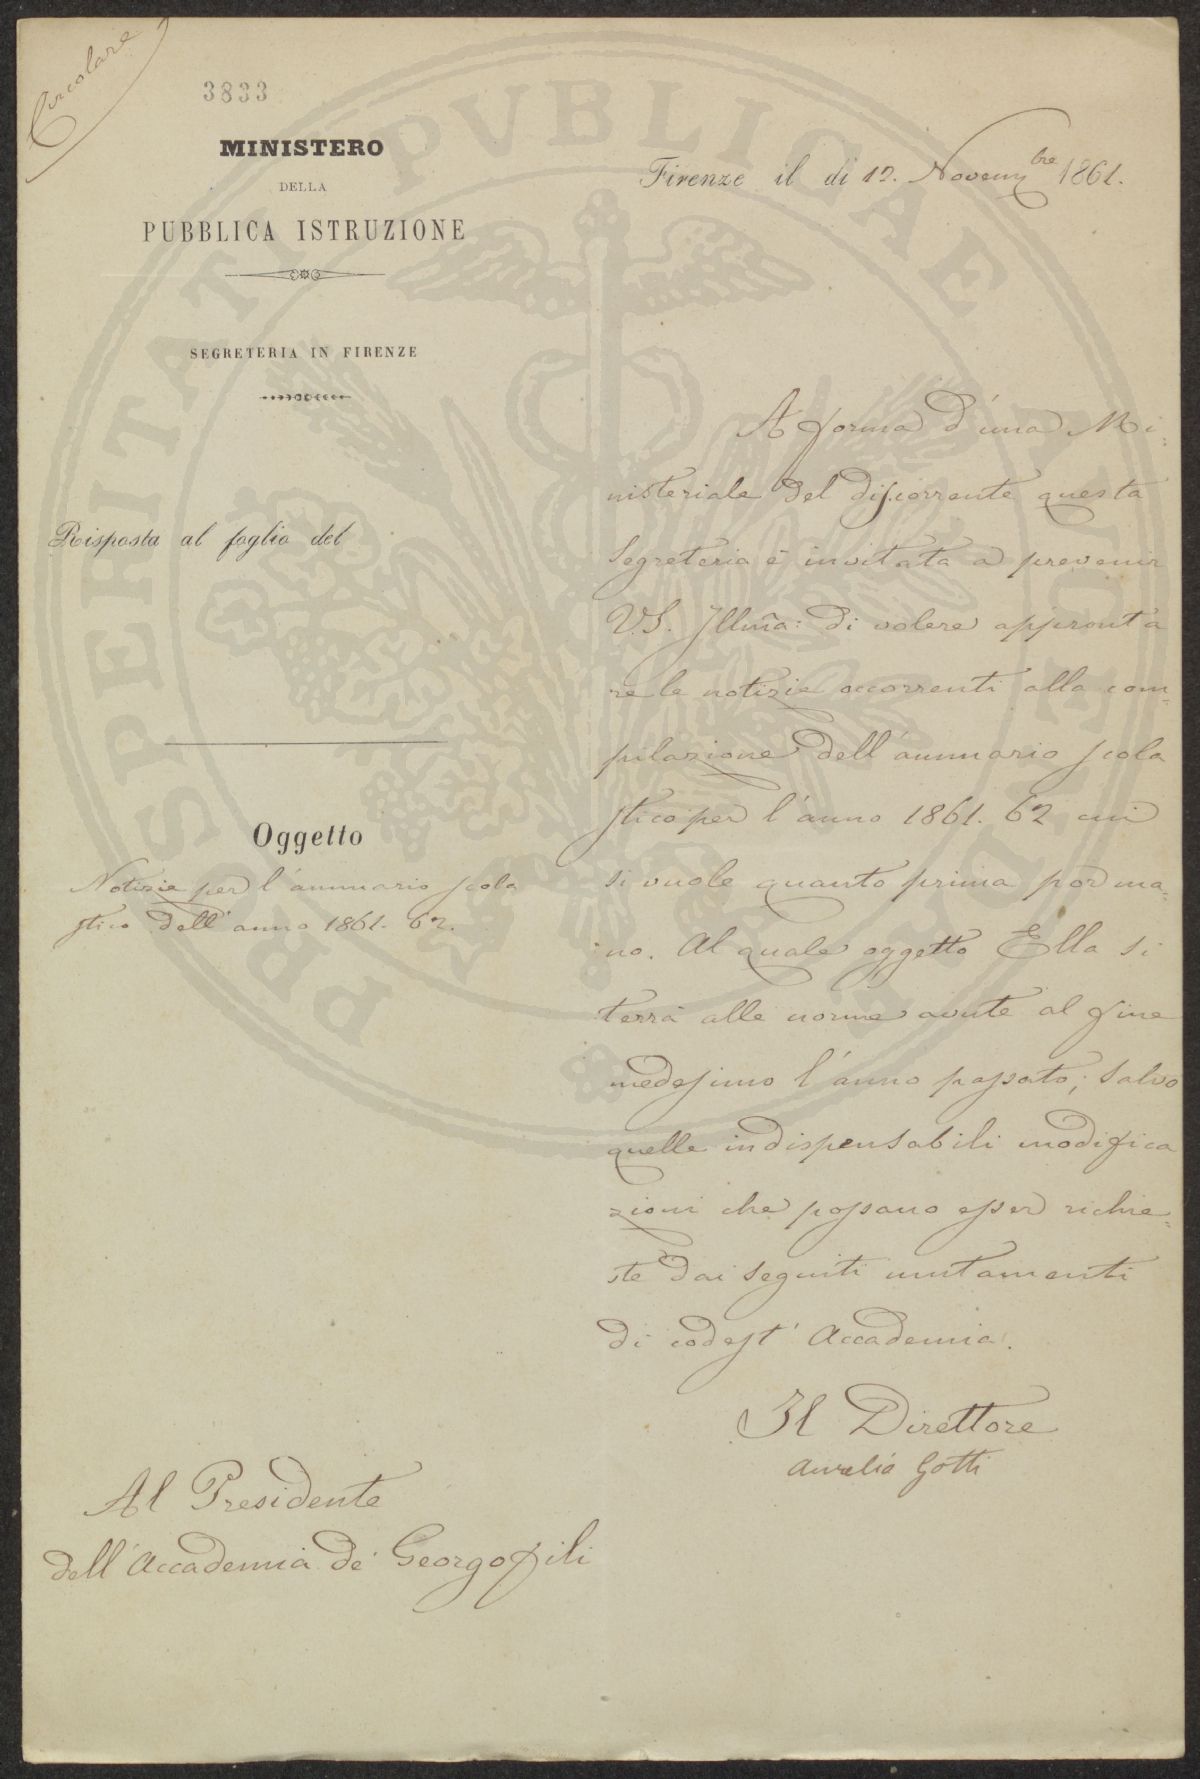 Circolare
3833
MINISTERO
DELLA
PUBBLICA ISTRUZIONE
SEGRETERIA IN FIRENZE
Risposta al foglio del
Oggetto
Notizie per l'annuario scola
stico dell'anno 1861-62.
Al Presidente
dell'Accademia de' Georgofili
Firenze il dì 12. Novembre 1861.
A forma d'una Mi=
nisteriale del dì corrente questa
Segreteria è invitata a prevenir
V.S. Illma: di volere appronta
re le notizie occorrenti alla com=
pilazione dell'annuario scola
stico per l'anno 1861. 62 cui
si vuole quanto prima por ma=
no. Al quale oggetto Ella si
terrà alle norme avute al fine
medesimo l'anno passato; salvo
quelle indispensabili modifica
zioni che possano esser richie=
ste dai seguiti mutamenti
di codest'Accademia.
Il Direttore
Aurelio Gotti
PROSPERITATI PVBLICAE AVGENDAE